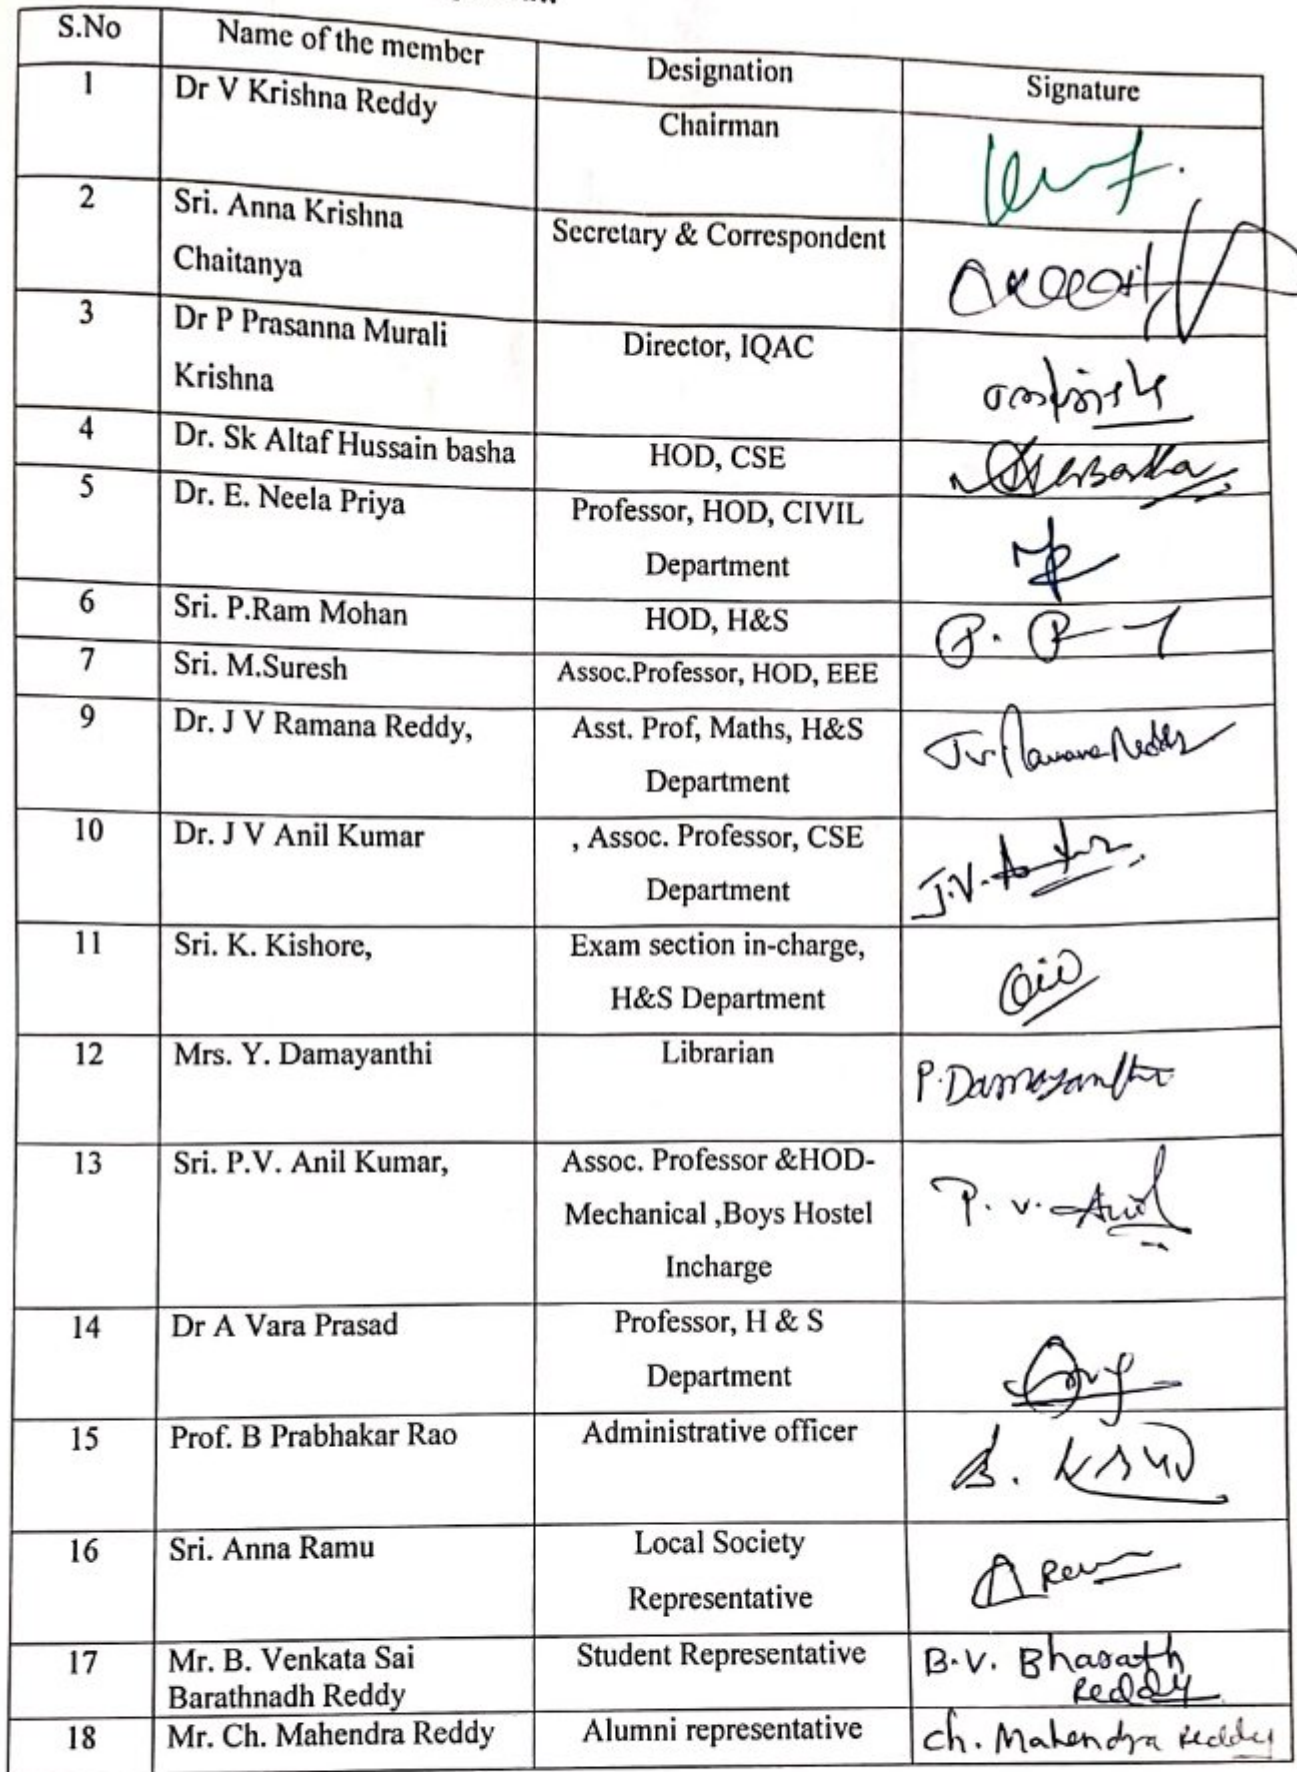 S.No Name of the member Designation Signature
1 Dr V Krishna Reddy Chairman
2 Sri. Anna Krishna Secretary & Correspondent
Chaitanya
3 Dr P Prasanna Murali Director, IQAC
Krishna
4 Dr. Sk Altaf Hussain basha HOD, CSE
5 Dr. E. Neela Priya Professor, HOD, CIVIL
Department
6 Sri. P.Ram Mohan HOD, H&S
7 Sri. M.Suresh Assoc.Professor, HOD, EEE
9 Dr. J V Ramana Reddy, Asst. Prof, Maths, H&S J.V. Ramana Reddy
Department
10 Dr. J V Anil Kumar , Assoc. Professor, CSE
Department J.V.
11 Sri. K. Kishore, Exam section in-charge,
H&S Department
12 Mrs. Y. Damayanthi Librarian P. Damayanthi
13 Sri. P.V. Anil Kumar, Assoc. Professor &HOD-
Mechanical ,Boys Hostel P. V. Anil
Incharge
14 Dr A Vara Prasad Professor, H & S
Department
15 Prof. B Prabhakar Rao Administrative officer
16 Sri. Anna Ramu Local Society
Representative
17 Mr. B. Venkata Sai Student Representative B.V. Bharath
Barathnadh Reddy Reddy
18 Mr. Ch. Mahendra Reddy Alumni representative Ch. Mahendra Reddy